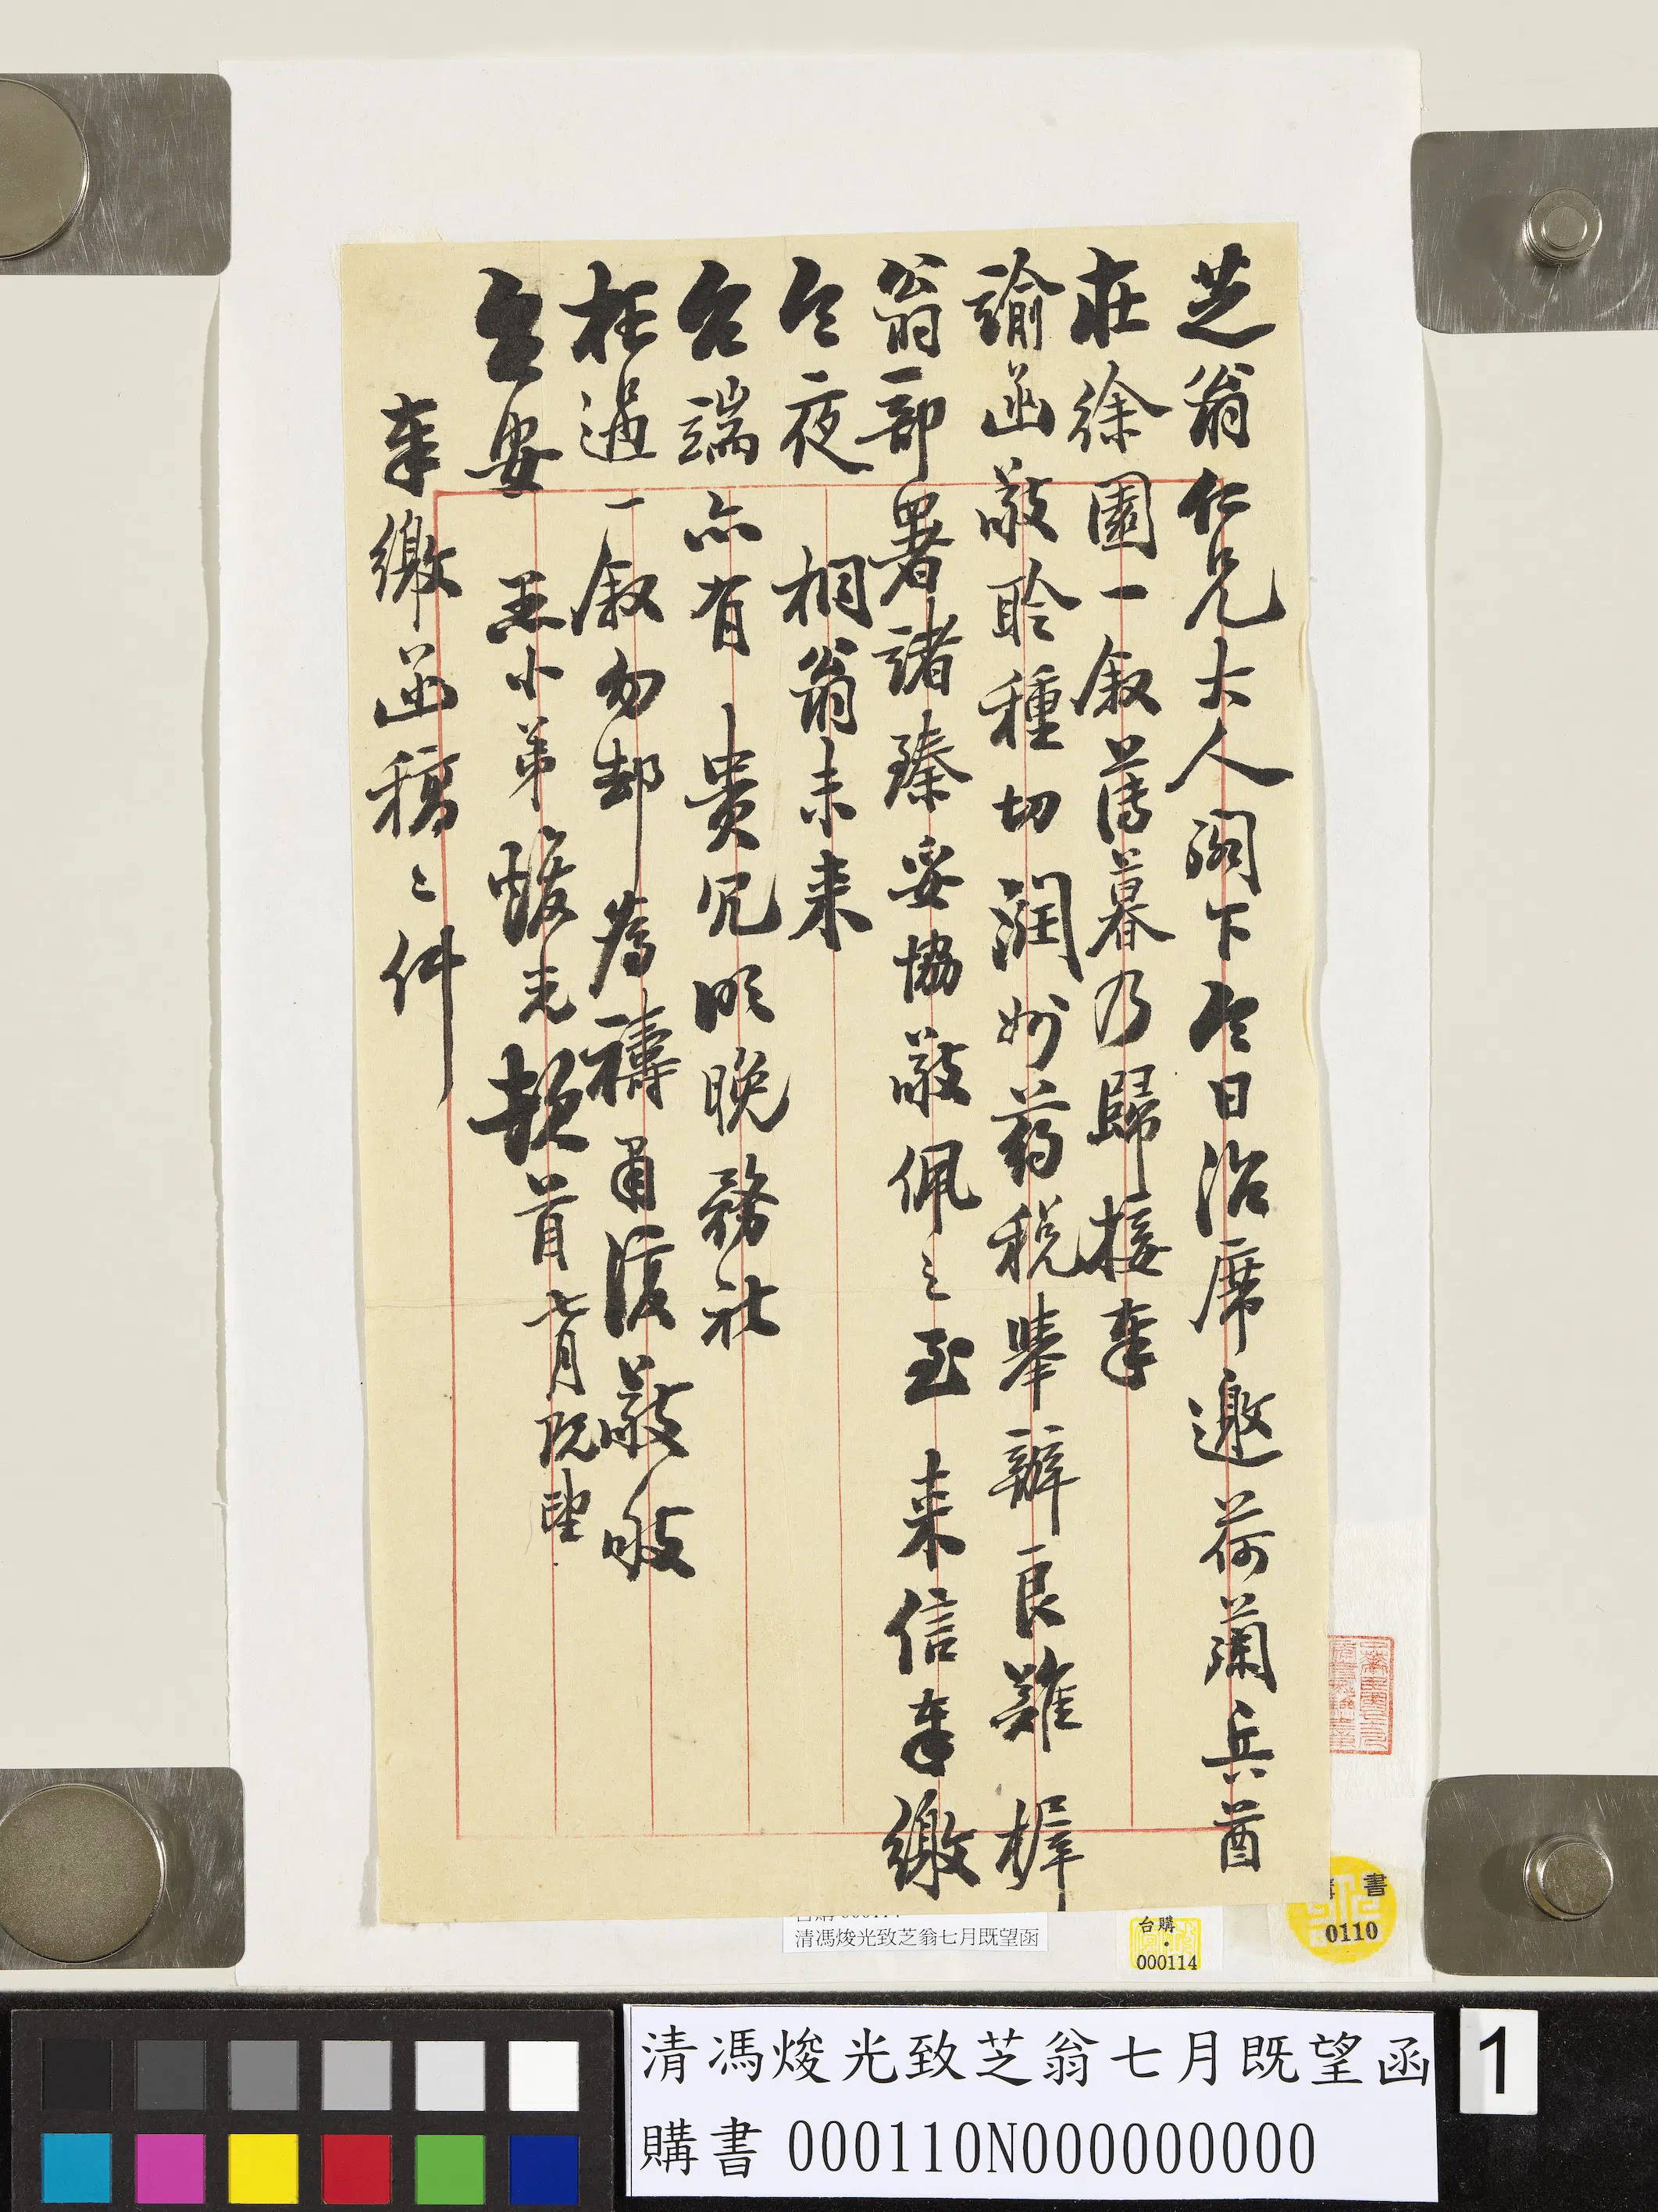 芝翁仁兄大人阁下今日治席邀荷蘭兵酋
在徐園一叙薄暮乃歸接奉
諭函敬聆種切洞妙药税舉辦良難樨
翁部署諸臻妥協敬佩之至 来信奉繳
今夜 桐翁未来
台端亦有 貴冗明晚務祉
枉過一叙勿却為禱甬復敬頌
台安 愚小弟焌光頓首七月既望
奉繳函稿二件
清馮焌光致芝翁七月既望函
台購
000114
書
0110
清馮焌光致芝翁七月既望函
購書 000110N000000000
1